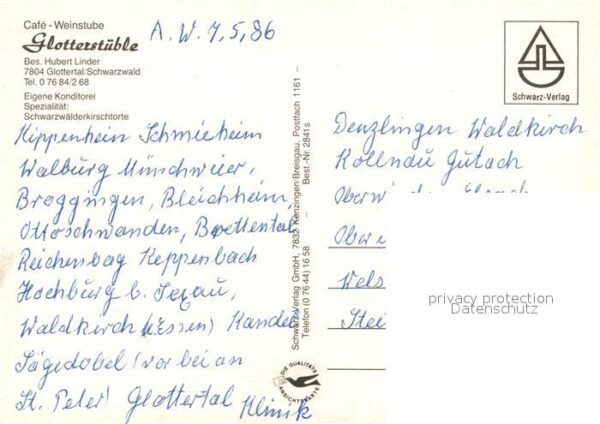 Café - Weinstube
Glotterstüble
Bes. Hubert Linder
7804 Glottertal/Schwarzwald
Tel. 0 76 84/2 68
Eigene Konditorei
Spezialität:
Schwarzwälderkirschtorte
A. W. 7, 5, 86
Kippenheim Schmieheim
Walburg Münschweier,
Broggingen, Bleichheim,
Ottoschwanden, Brettental
Reichenbag Keppenbach
Hochburg b. Sexau,
Waldkirch (Essen) Kandel
Sägedobel (vorbei an
St. Peter) Glottertal Klinik
Schwarz-Verlag GmbH, 7832 Kenzingen Breisgau, Postfach 1161 –
Telefon (0 76 44) 16 58 – Best.-Nr. 2841s
DIE QUALITÄTS
ANSICHTSKARTE
Schwarz-Verlag
Denzlingen Waldkirch
Kollnau Gutach
privacy protection
Datenschutz